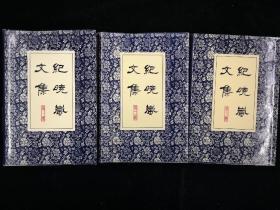 紀曉嵐
文集
紀曉嵐
文集
紀曉嵐
文集